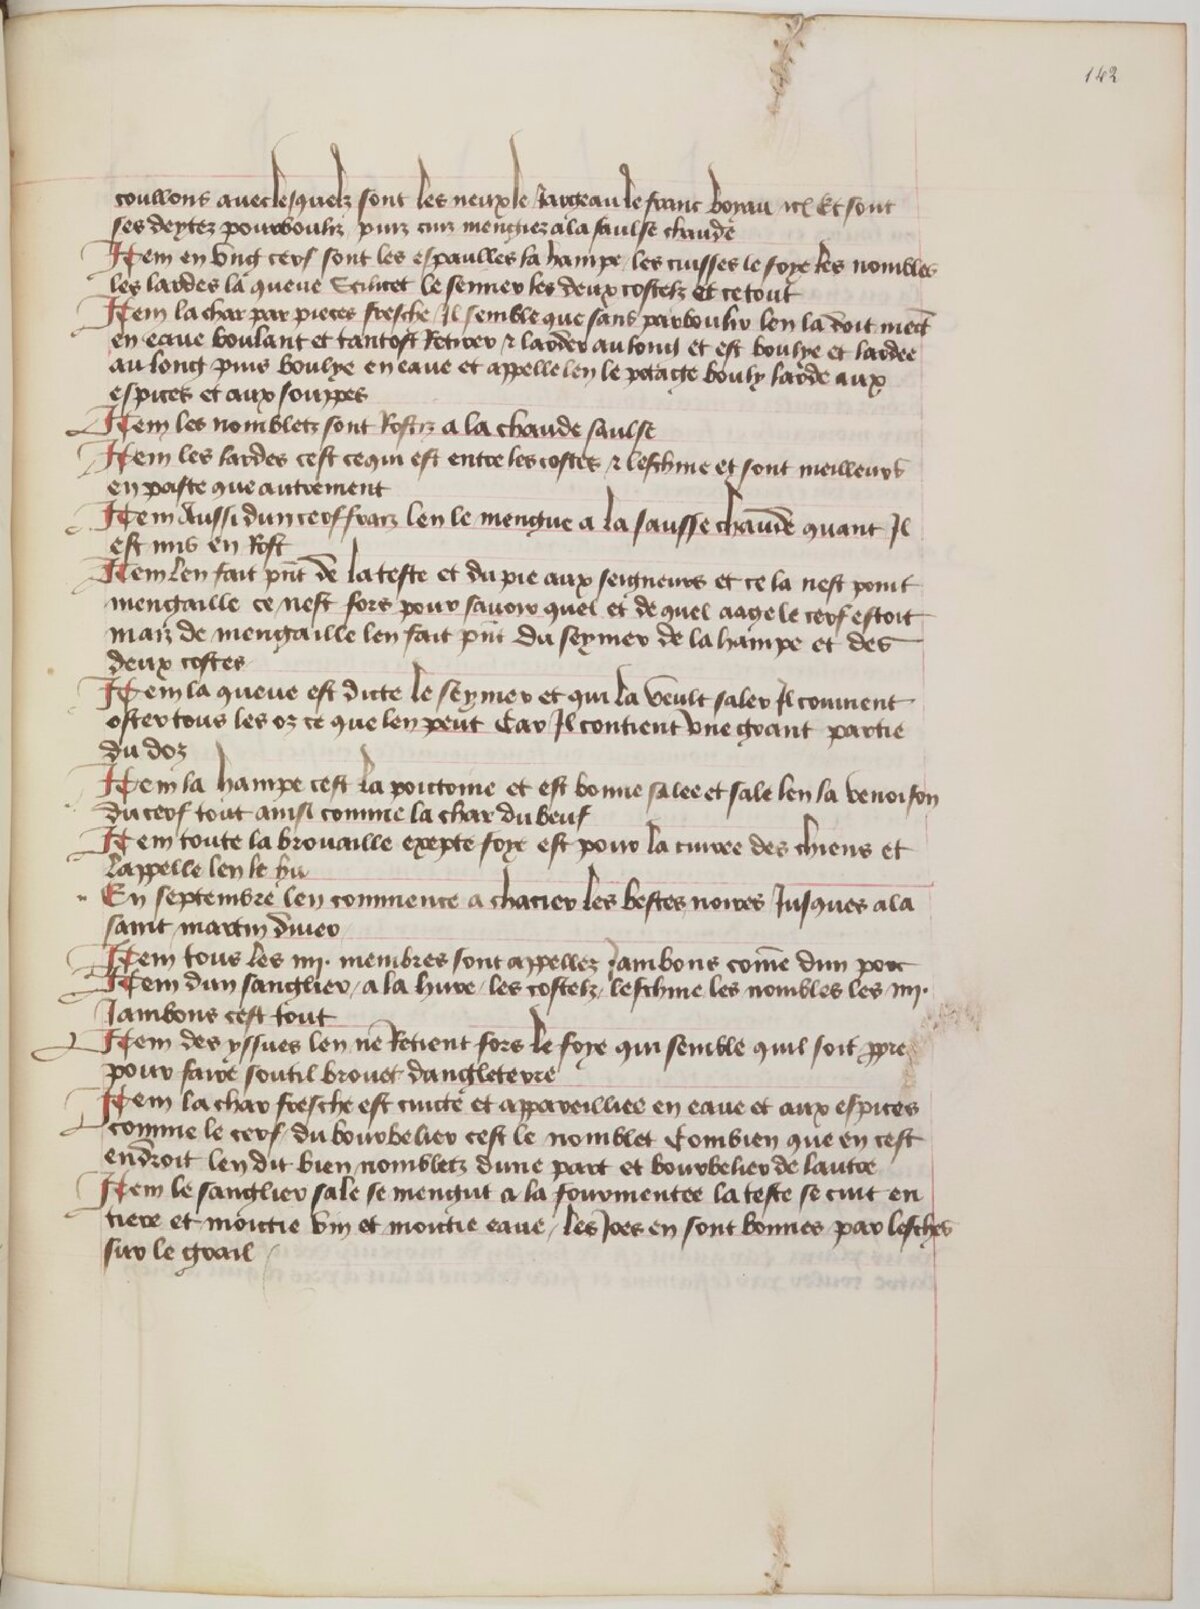 142
couillons avec lesquelz sont les neux le jargeau le franc boyau &c Et sont
ses deytez pourbouliz puiz cuiz mengiez a la saulse chaude
Item en ung cerf sont les espaulles la hampe les cuisses le foye les nombles
les lardes la queue Scilicet le semier les deux costelz Et ce tout
Item la char par pieces fresche Il semble que sans parboulir len la doit mect
en eaue boulant et tantost Retirer & larder au long et est boulye et lardee
au long puis boulye en eaue et appelle len le potage bouly larde aux
espices et aux souppes
Item les nombletz sont Rostiz a la chaude saulse
Item les lardes cest ce qui est entre les costes & leschine et sont meilleurs
en paste que autrement
Item Aussi dun cerf fraiz len le mengue a la sausse chaude quant Il
est mis en Rost
Item Len fait pñt de la teste et du pie aux seigneurs et ce la nest point
mengaille ce nest fors pour savoir quel et de quel aage le cerf estoit
maiz de mengaille len fait pñt du seymer de la hampe et des
deux costes
Item la queue est dicte le seymer et qui la veult saler Il convient
oster tous les oz ce que len peut Car Il contient une grant partie
du doz
Item la hampe cest la poictrine et est bonne salee et sale len la venoison
du cerf tout ainsi comme la char du beuf
Item toute la brouaille exepte foye est pour la curee des chiens et
lappelle len le hu
En septembre len commence a chacier les bestes noires Jusques a la
saint martin diver
Item tous les iiii. membres sont appellez Jambons come dun porc
Item dun sanglier a la hure les costelz leschine les nombles les iiii.
Jambons cest tout
Item des yssues len ne Retient fors le foye qui semble quil soit ppre
pour faire soutil brouet dangleterre
Item la char fresche est cuicte et appareilliee en eaue et aux espices
comme le cerf du bourbelier cest le nomblet Combien que en cest
endroit len dit bien nombletz dune part et bourbelier de lautre
Item le sanglier sale se mengut a la fourmentee la teste se cuit en
tiere et moictie vin et moictie eaue les Joes en sont bonnes par lesches
sur le grail